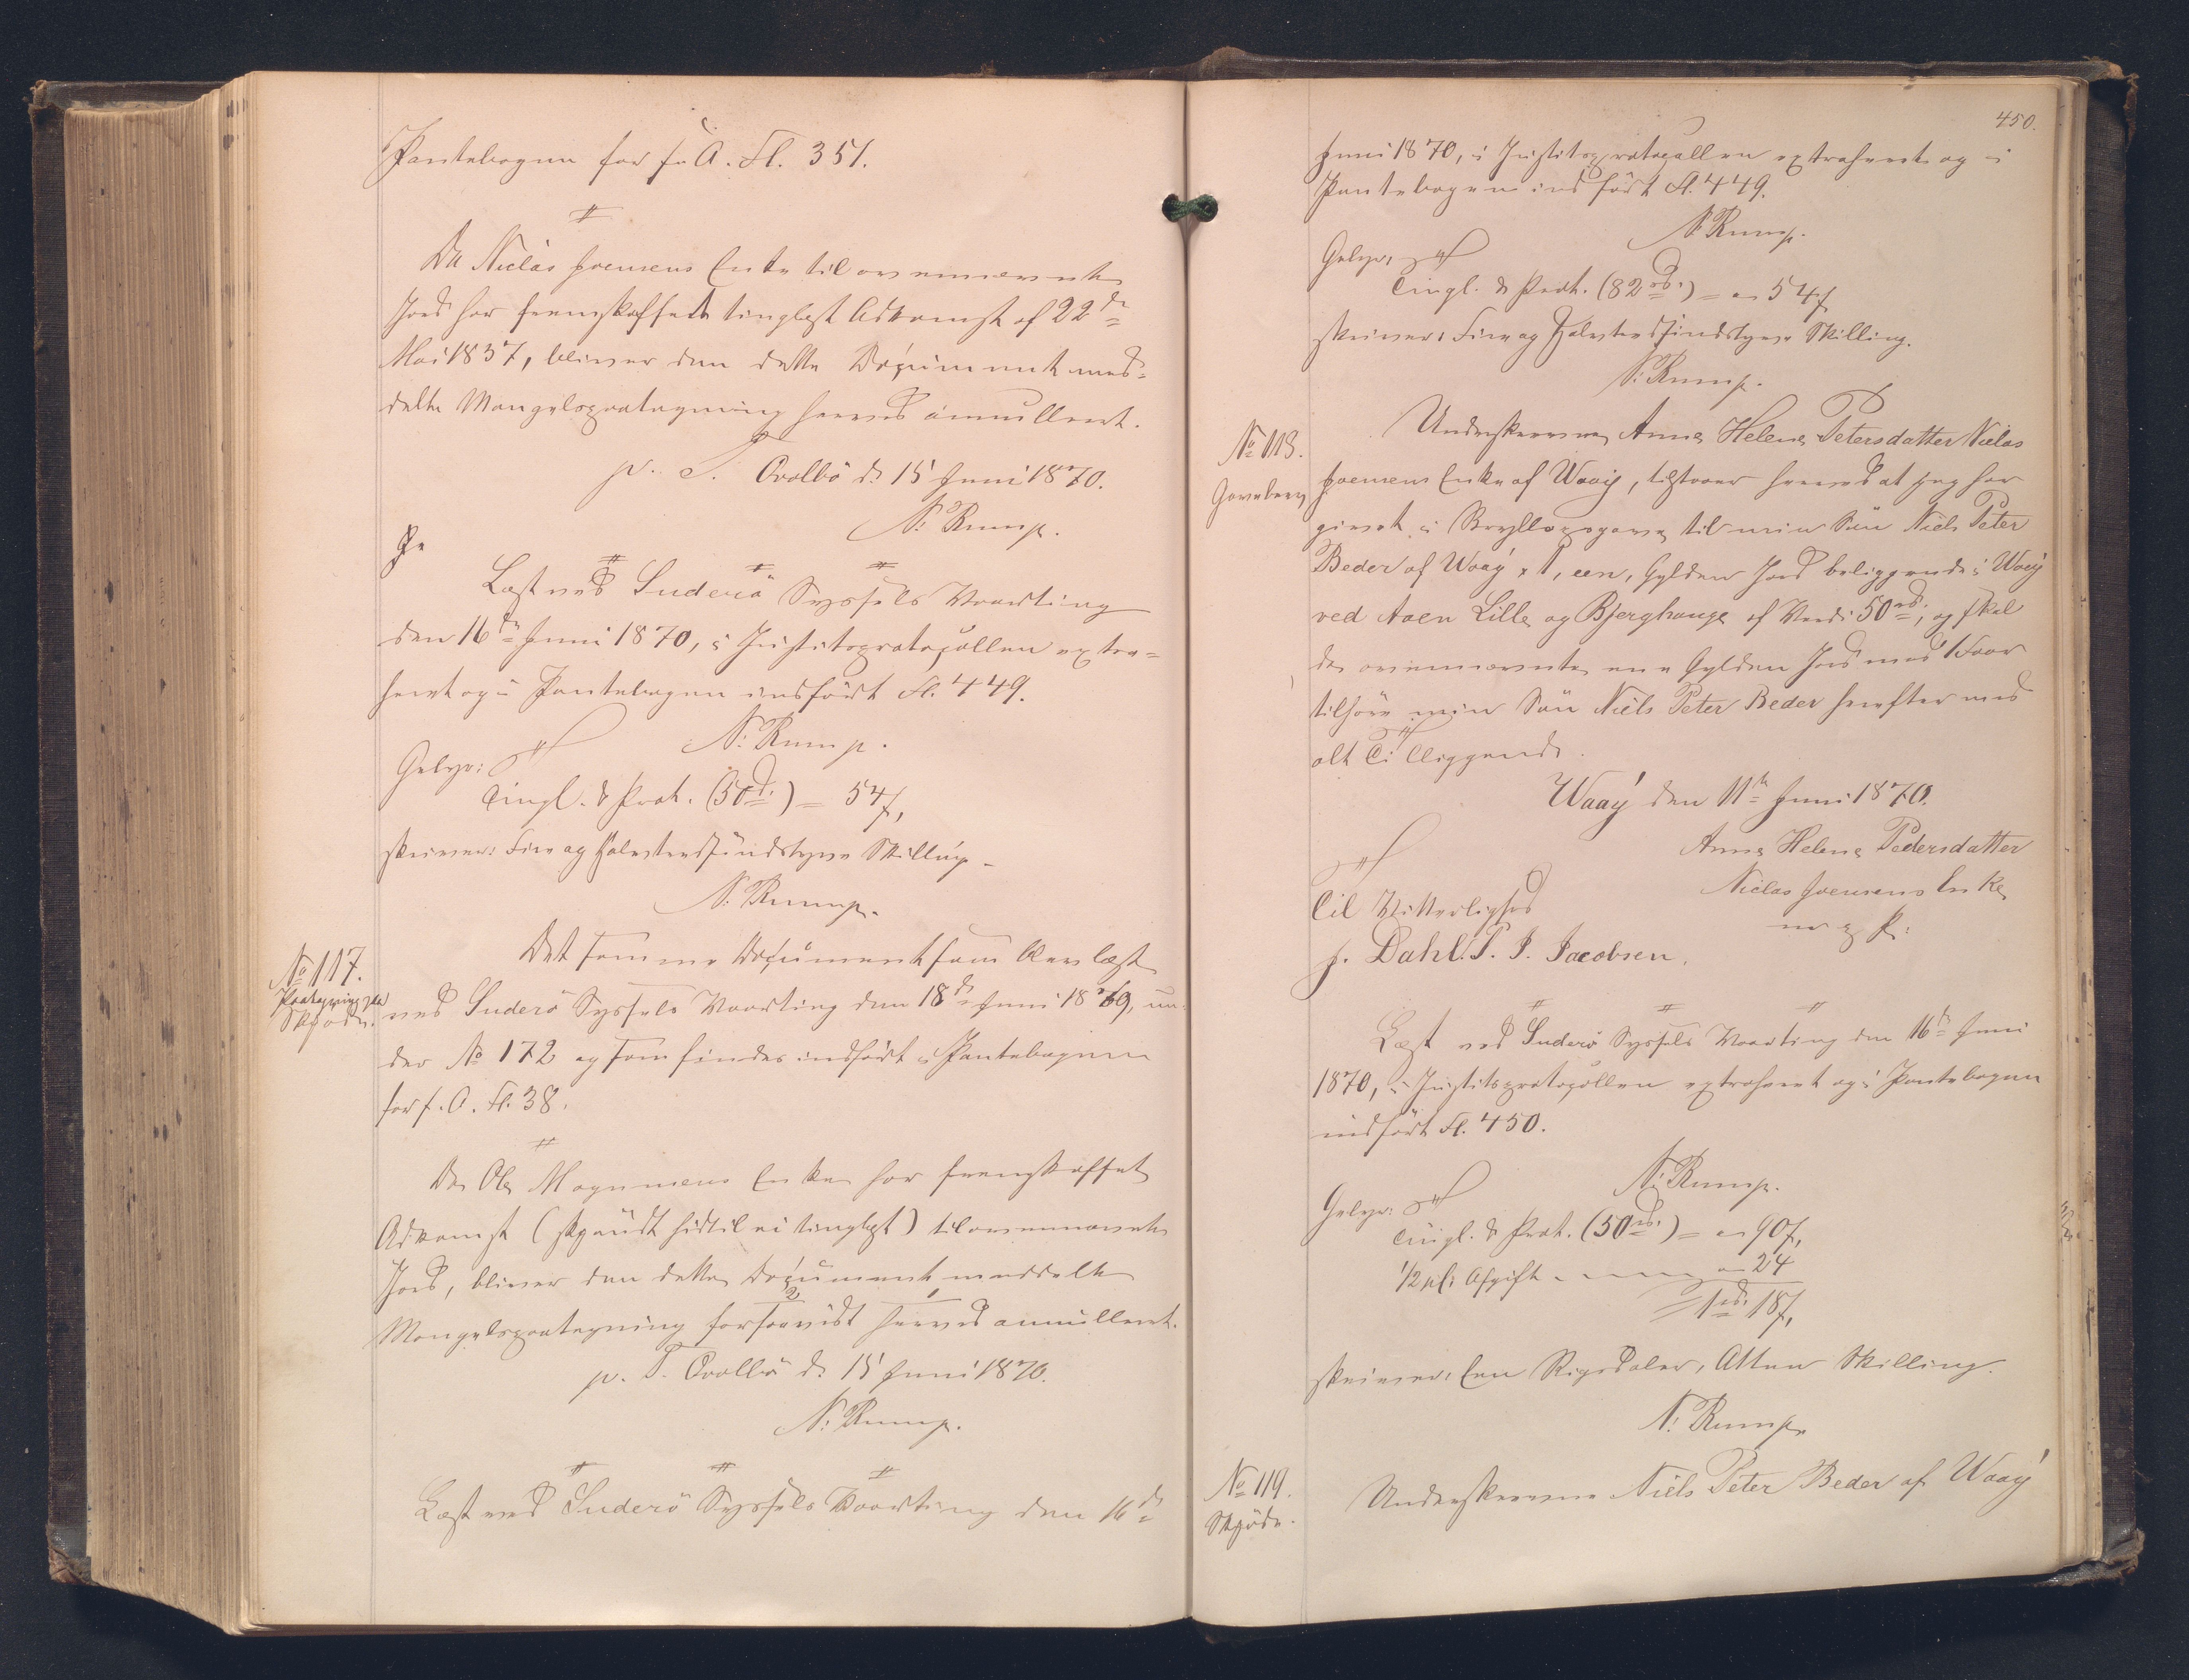 Pantebogen for f. A. Fl. 351.
Da Niclas Joensens Enke til ovennævnte
Jord har fremskaffet tinglæst Adkomst af 22de
Mai 1857, bliver den dette Document med-
delte Mangelspaategning herved annulleret.
p. T. Qvalbø d. 15 Juni 1870.
N. Rump.
Læst ved Suderö Syssels Vaarting
den 16de Juni 1870, i Justitsprotocollen extra-
heret og i Pantebogen indført Fl. 449.
N. Rump.
Gebyr:
Tingl. & Prot. (50rd.) = 54ſ,
skriver: Fire og Halvtredsindstyve Skilling.
N. Rump.
No 117.
Paategning paa
Skjøde.
Det samme Document som blev læst
ved Suderö Syssels Vaarting den 18de Juni 1869, un-
der No 172 og som findes indført i Pantebogen
for f. A. Fl. 38.
Da Ole Magnusens Enke har fremskaffet
Adkomst (skjøndt hidtil ei tinglæst) til ovennævnte
Jord, bliver den dette Document meddelte
Mangelspaategning forsaavidt herved annulleret.
p. T. Qvalbø d. 15 Juni 1870.
N. Rump.
Læst ved Suderö Syssels Vaarting den 16de
450.
Juni 1870, i Justitsprotocollen extraheret og i
Pantebogen indført Fl. 449.
N. Rump.
Gebyr:
Tingl. & Prot. (82rd.) = 54ſ
skriver: Fire og Halvtredsindstyve Skilling.
N. Rump.
No 118.
Gavebrev
Underskrevne Anne Helene Petersdatter Niclas
Joensens Enke af Waaÿ, tilstaaer herved at jeg har
givet i Bryllupsgave til min Sön Niels Peter
Beder af Waaÿ 1, een, Gylden Jord beliggende i Waaÿ
ved Aaen Lille og Bjerghauge af Værdi 50rd., og skal
de ovennævnte ene Gylden Jord med 1 Faar
tilhöre min Sön Niels Peter Beder herefter med
alt Tilliggende.
Waaÿ den 11te Juni 1870.
Anne Helene Pedersdatter
Niclas Joensens Enke
m. f. P.
Til Vitterlighed
J. Dahl. P. J. Jacobsen.
Læst ved Suderö Syssels Vaarting den 16de Juni
1870, i Justitsprotocollen extraheret og i Pantebogen
indført Fl. 450.
N. Rump.
Gebyr:
Tingl. & Prot. (50rd.) = 90ſ,
1/2 pCt Afgift 24
= 1rd. 18ſ,
skriver: Een Rigsdaler, Atten Skilling.
N. Rump.
No 119.
Skjøde.
Underskrevne Niels Peter Beder af Waaÿ